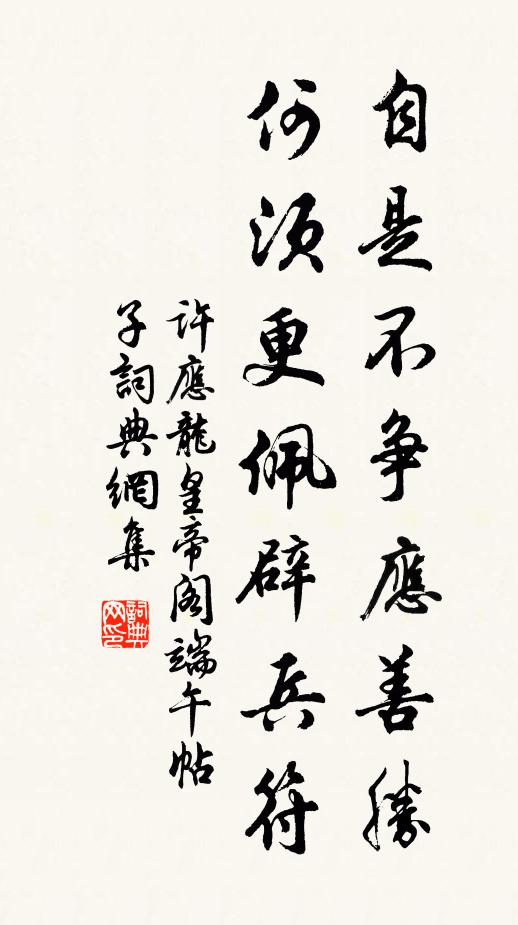 自是不争應善勝
何須更佩辟兵符
許應龍皇帝阁端午帖
子詞典網集
詞典网印